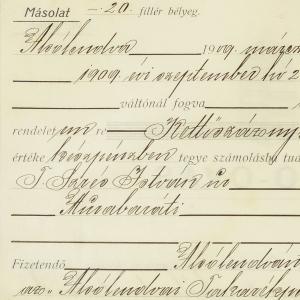 Másolat —·20. fillér bélyeg.
Alsólendva 1909. márczius
1909. évi szeptember hó 2
váltónál fogva
rendelet re Kettőszáz
értéke készpénzben tegye számolásba tud
T. István úr
Muraharáti
Fizetendő Alsólendván
az „Alsólendvai Takarékp